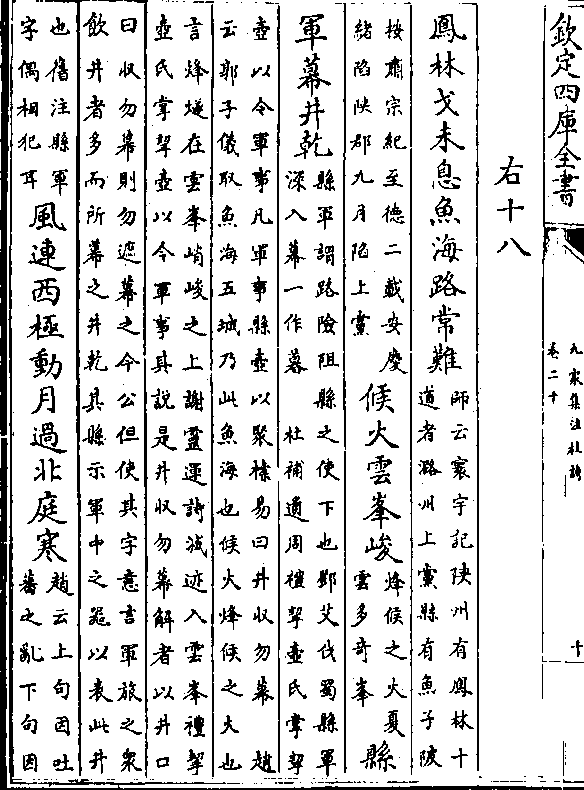 欽定四庫全書
九家集注杜詩
卷二十
十
右十八
鳳林戈未息魚海路常難
師云寰宇記陜州有鳳林十
道者潞州上黨縣有魚子陂
按肅宗紀至德二載安慶
緒陷陜郡九月陷上黨
候火雲峯峻
烽候之火夏
雲多奇峯
縣
軍幕井乾
縣軍謂路險阻縣之使下也鄧艾伐蜀縣軍
深入幕一作暮 杜補適周禮挈壺氏掌挈
壺以令軍事凡軍事縣壺以聚㯓易曰井收勿幕趙
云郭子儀取魚海五城乃此魚海也候火烽候之火也
言烽燧在雲峯峭峻之上謝靈運詩滅迹入雲峯禮挈
壺氏掌挈壺以令軍事其說是井收勿幕解者以井口
曰收勿幕則勿遮幕之今公但使其字意言軍旅之衆
飲井者多而所幕之井乾其縣示軍中之以表此井
也舊注縣軍
字偶相犯耳
風連西極動月過北庭寒
趙云上句因吐
蕃之亂下句因